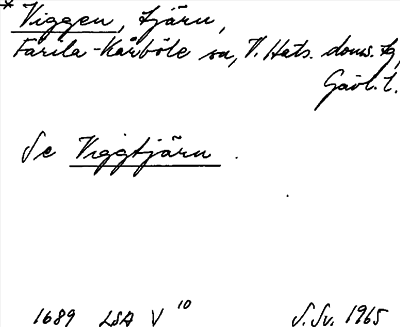 * Viggen, tjärn,
Färila-Kårböle sn, V. Häls. doms. tg,
Gävl. l.
Se Viggtjärn.
1689 LSA V 10 S. Sv. 1965